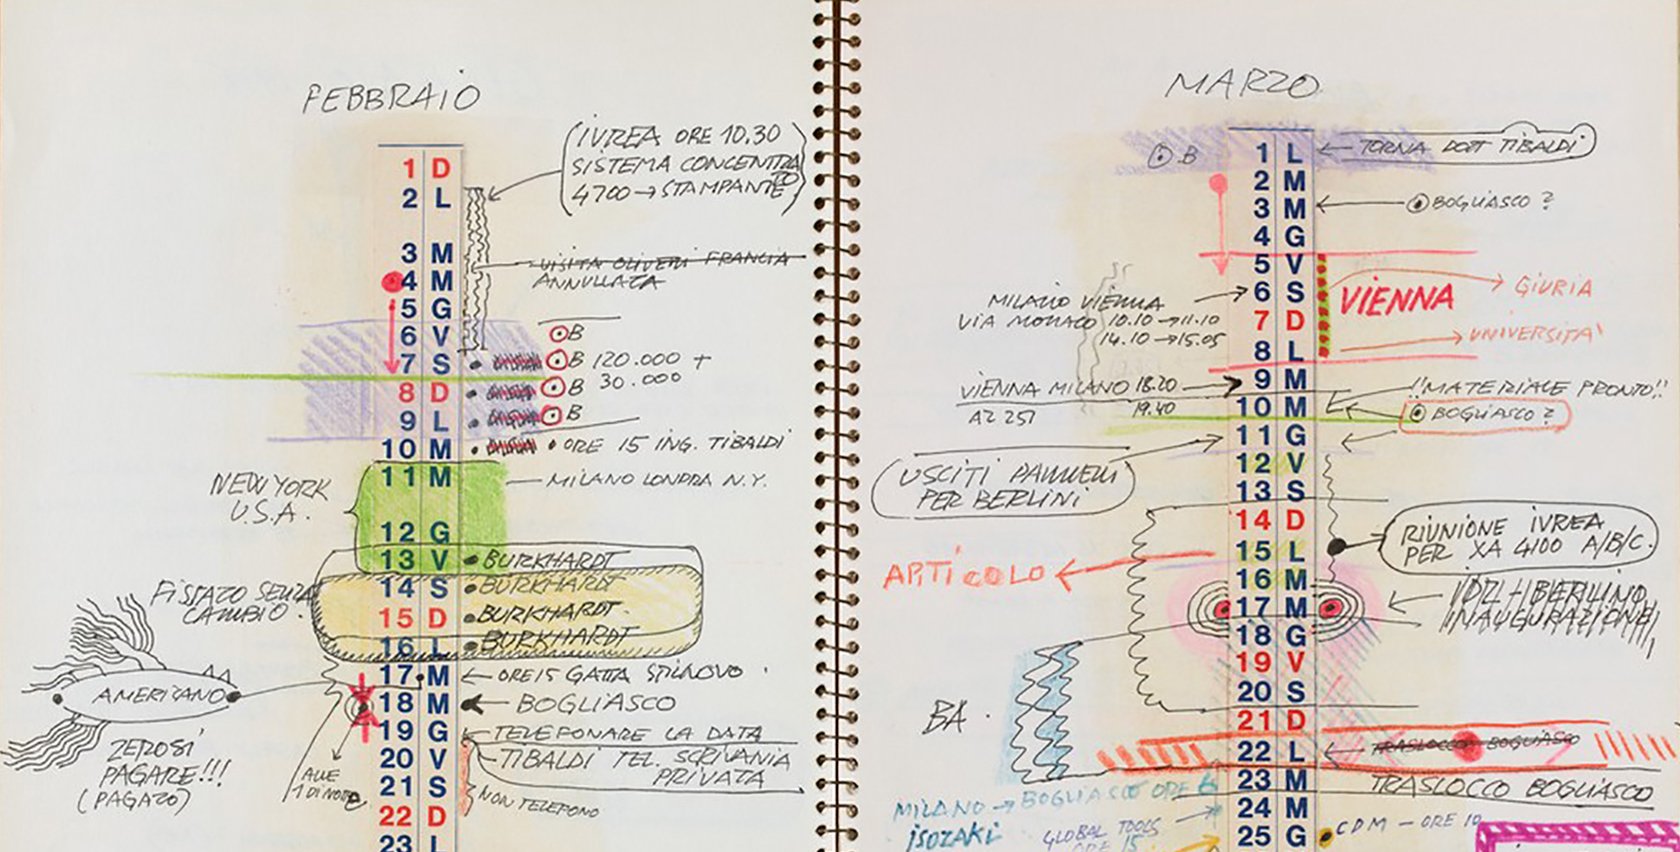 FEBBRAIO
(IVREA ORE 10.30
SISTEMA CONCENTRATO
4700 → STAMPANTE)
1 D
2 L
3 M
VISITA OLIVETTI FRANCIA
ANNULLATA
4 M
5 G
6 V
B
7 S
B 120.000 +
30.000
8 D
B
9 L
B
10 M
• ORE 15 ING. TIBALDI
NEW YORK
U.S.A.
11 M
MILANO LONDRA N.Y.
12 G
13 V
• BURKHARDT
FISSATO SENZA
CAMBIO.
14 S
• BURKHARDT
15 D
• BURKHARDT.
16 L
• BURKHARDT
17 M
← ORE 15 GATTA STILNOVO
AMERICANO
18 M
BOGLIASCO
19 G
TELEFONARE LA DATA
20 V
TIBALDI TEL. SCRIVANIA
PRIVATA
PAGARE!!!
(PAGATO)
ALLE
1 DI NOTTE
21 S
NON TELEFONO
22 D
23 L
MARZO
B
1 L
← TORNA DOTT TIBALDI
2 M
3 M
BOGLIASCO ?
4 G
5 V
MILANO VIENNA
VIA MONACO 10.10 → 11.10
14.10 → 15.05
6 S
VIENNA
GIURIA
7 D
UNIVERSITA'
8 L
VIENNA MILANO 18.20
AZ 257 19.40
9 M
!!MATERIALE PRONTO!!
10 M
BOGLIASCO ?
11 G
USCITI PANNELLI
PER BERLINI
12 V
13 S
14 D
RIUNIONE IVREA
PER XA 4100 A/B/C.
15 L
ARTICOLO
16 M
17 M
IDZ - BERLINO
INAUGURAZIONE
18 G
19 V
20 S
BA.
21 D
22 L
TRASLOCCO BOGLIASCO
23 M
TRASLOCCO BOGLIASCO
MILANO → BOGLIASCO ORE 6
24 M
ISOZAKI
GLOBAL TOOLS
ORE 15
25 G
CDM - ORE 10